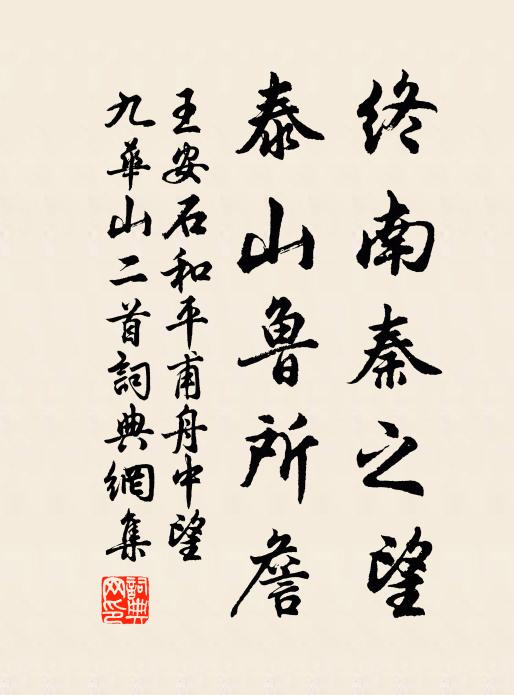 終南秦之望
泰山魯所詹
王安石和平甫舟中望
九華山二首詞典網集
詞典
网印